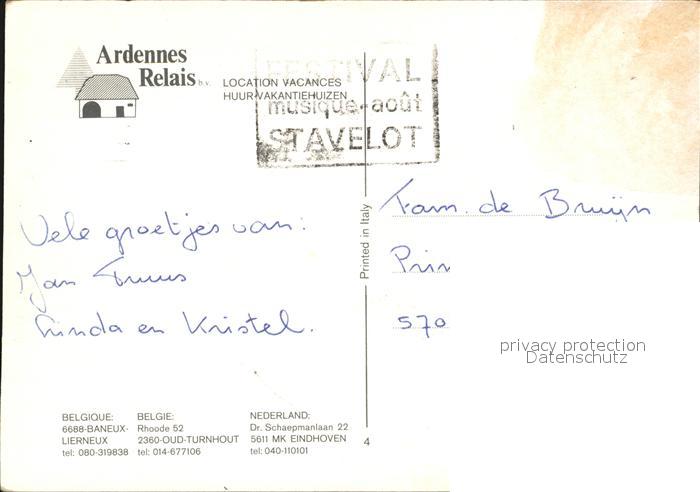 Ardennes
Relais b.v.
LOCATION VACANCES
HUUR VAKANTIEHUIZEN
FESTIVAL
musique-août
STAVELOT
Vele groetjes van:
Jan Truus
Linda en Kristel.
Printed in Italy
Fam. de Bruijn
Prin
570
privacy protection
Datenschutz
BELGIQUE:
6688-BANEUX-
LIERNEUX
tel: 080-319838
BELGIE:
Rhoode 52
2360-OUD-TURNHOUT
tel: 014-677106
NEDERLAND:
Dr. Schaepmanlaan 22
5611 MK EINDHOVEN
tel: 040-110101
4